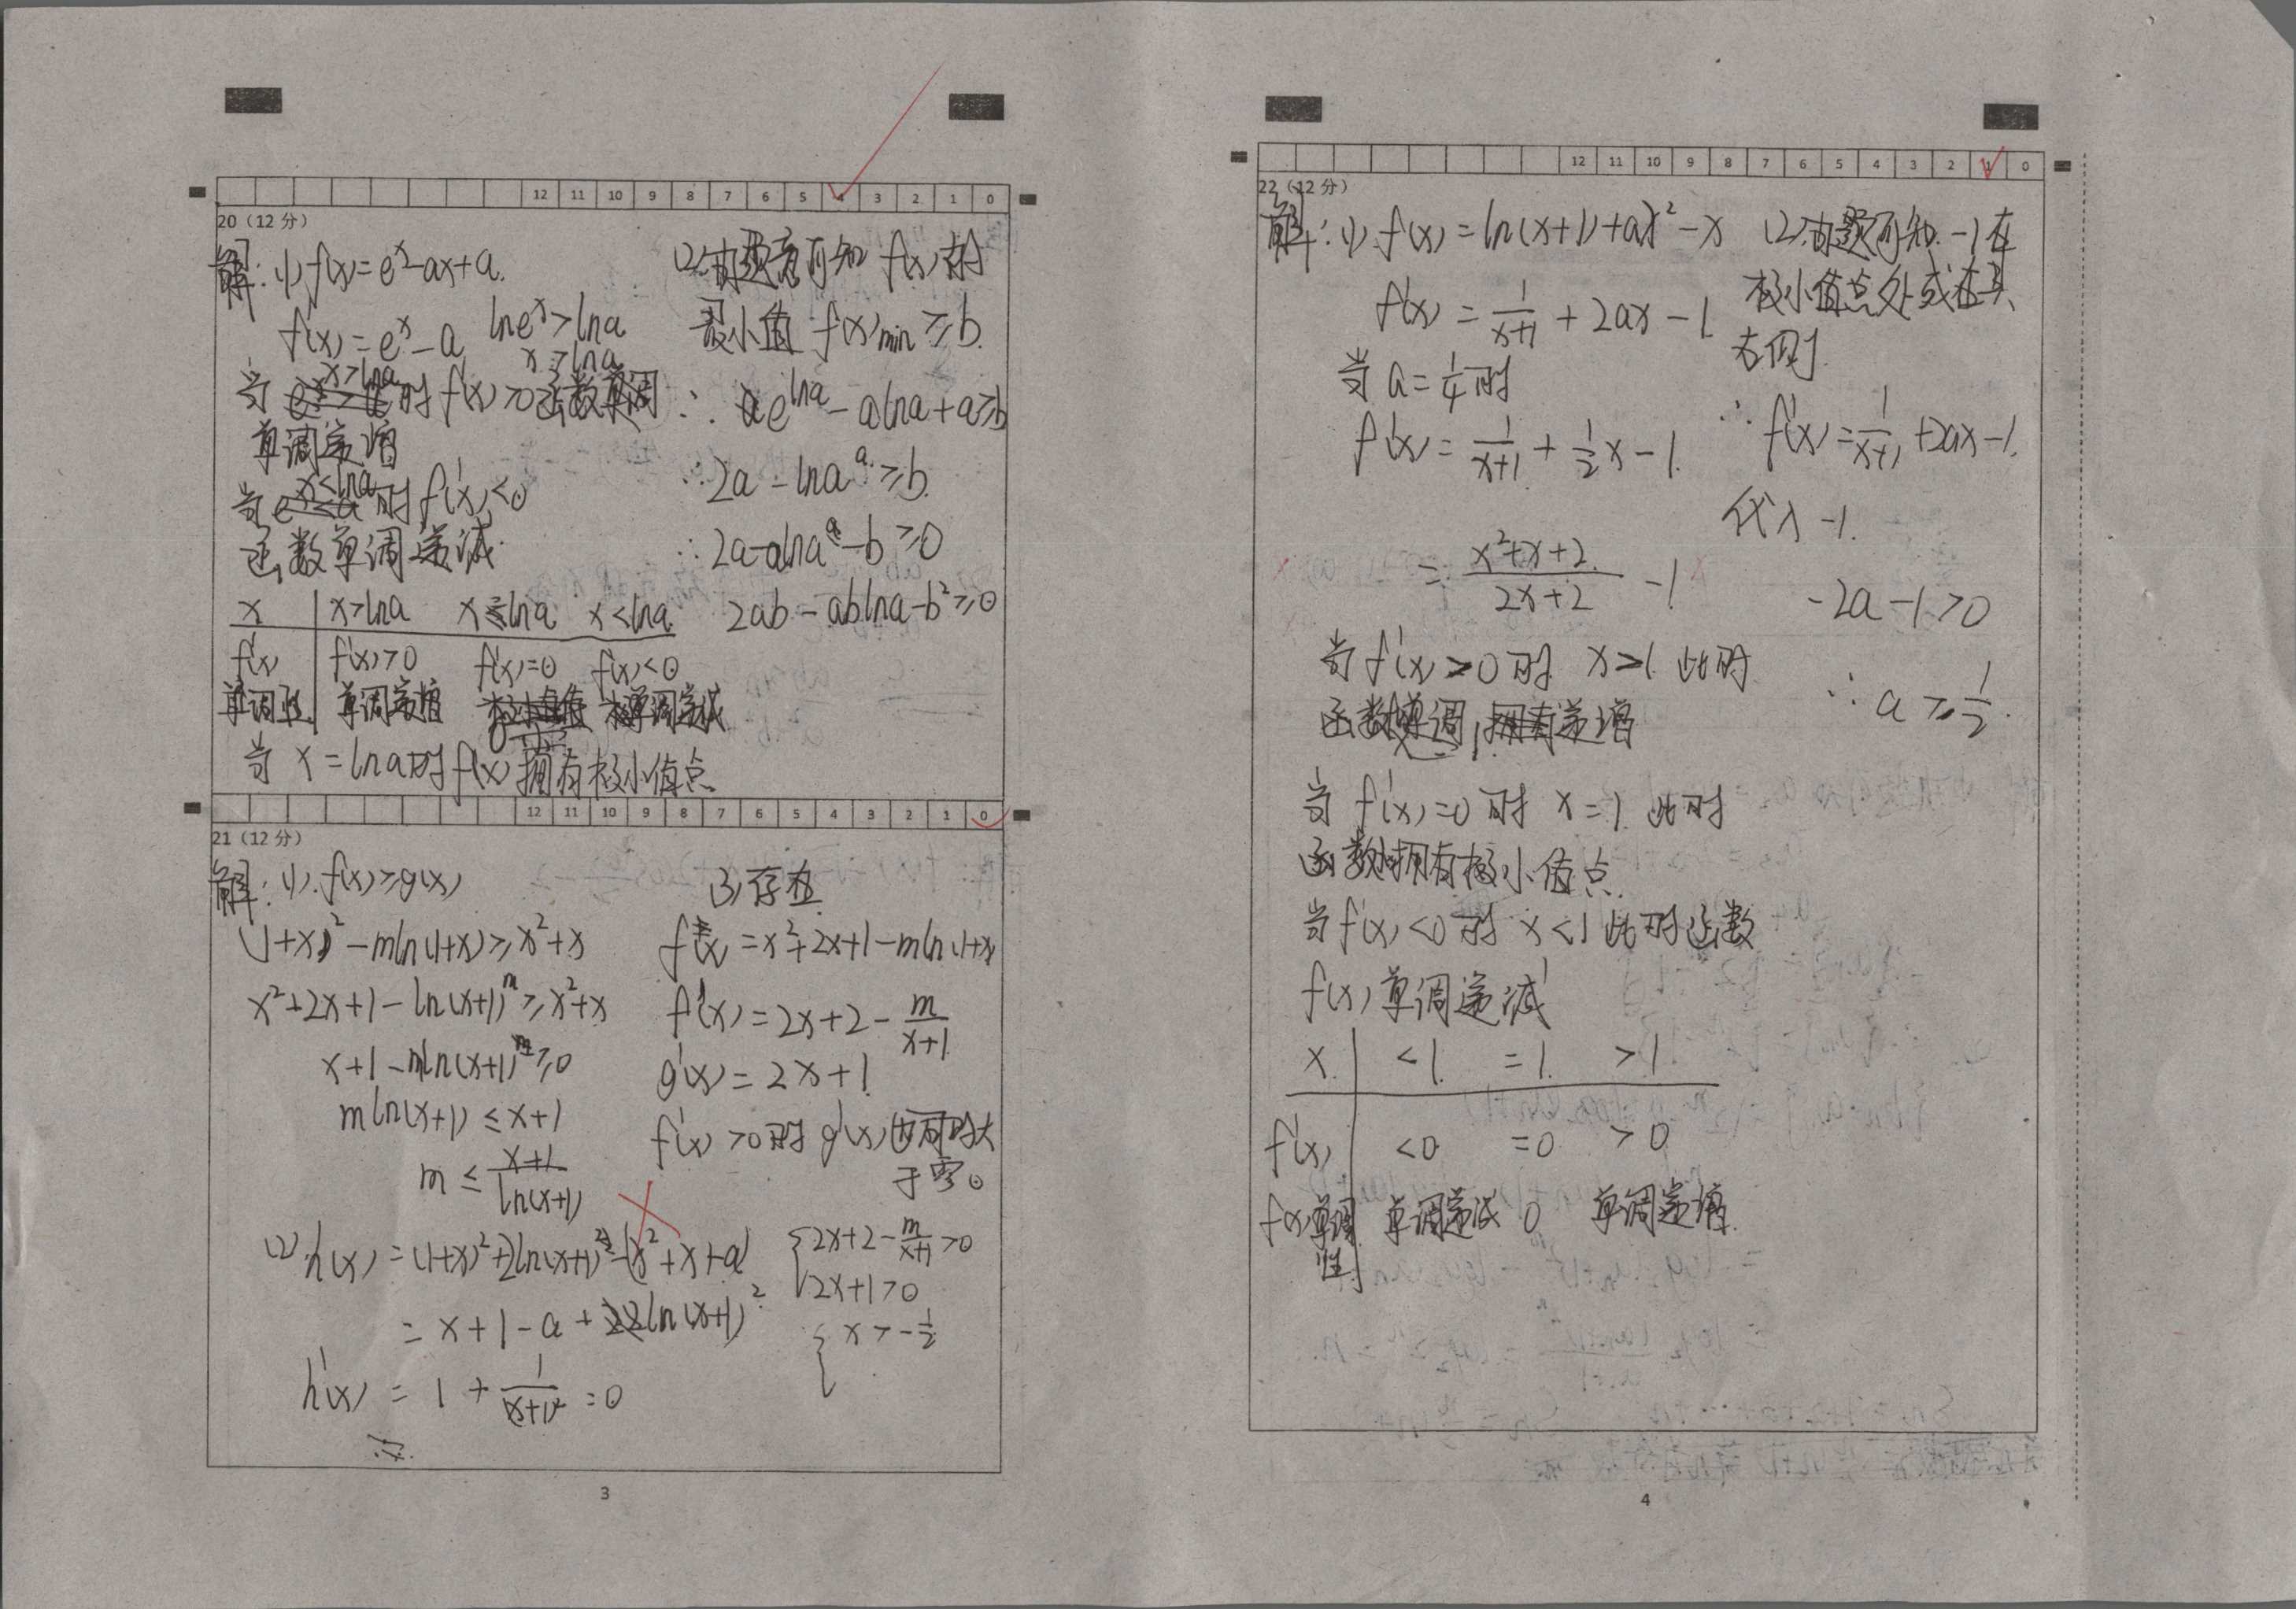 12 11 10 9 8 7 6 5 4 3 2 1 0
20（12 分）
解：(1) f(x)=e^x-ax+a.
f'(x)=e^x-a lne^x>lna
x>lna
当 x>lna 时 f'(x)>0 函数单调
单调递增
当 x<lna 时 f'(x)<0
函数单调递减.
x x>lna x=lna x<lna
f'(x) f'(x)>0 f'(x)=0 f'(x)<0
单调性 单调递增 单调递减
当 x=lna时 f(x)拥有极小值点
(2).由题意可知 f(x)
最小值 f(x)min ≥b.
∴ ae^{lna} - alna+a≥b
∴ 2a-lna^a ≥b.
∴ 2a-alna-b≥0
2ab-ablna-b²≥0
12 11 10 9 8 7 6 5 4 3 2 1 0
21（12 分）
解：(1).f(x)≥g(x)
(1+x)²-mln(1+x)≥x²+x
x²+2x+1-ln(x+1)^m≥x²+x
x+1-mln(x+1)≥0
mln(x+1)≤x+1
m≤\frac{x+1}{ln(x+1)}
(2).h(x)=(1+x)²+2ln(x+1)-(x²+x+a)
=x+1-a+2ln(x+1)²
h'(x)=1+\frac{1}{(x+1)²}=0
(3)存在
f(x)=x²+2x+1-mln(1+x)
f'(x)=2x+2-\frac{m}{x+1}
g'(x)=2x+1
f'(x)>0时 g'(x)也同时大
于零。
{2x+2-\frac{m}{x+1}>0
2x+1>0
{x>-\frac{1}{2}
3
12 11 10 9 8 7 6 5 4 3 2 1 0
22（12 分）
解：(1).f(x)=ln(x+1)+ax²-x
f'(x)=\frac{1}{x+1}+2ax-1
当 a=\frac{1}{4}时
f'(x)=\frac{1}{x+1}+\frac{1}{2}x-1.
=\frac{x²+x+2}{2x+2}-1
当 f'(x)>0时 x>1 此时
函数单调递增
当 f'(x)=0时 x=1 此时
函数拥有极小值点.
当 f'(x)<0时 x<1 此时函数
f(x)单调递减
x <1 =1 >1
f'(x) <0 =0 >0
f(x)单调性 单调递减 0 单调递增
(2).由题可知.-1在
极小值点处或在其
右侧.
∴ f'(x)=\frac{1}{x+1}+2ax-1.
代入-1.
-2a-1>0
∴ a≥\frac{1}{2}.
4